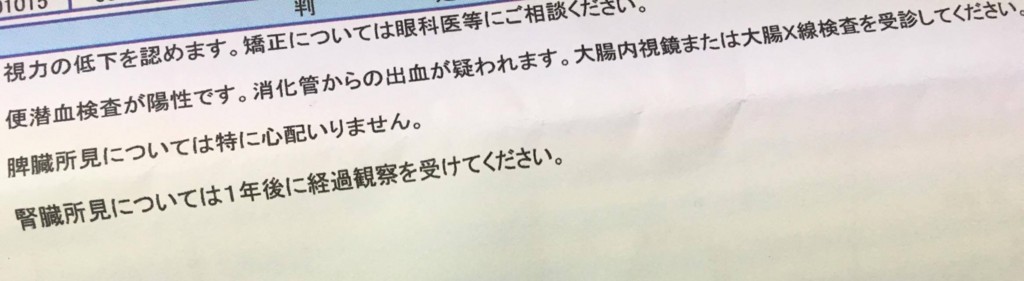 01015
判
視力の低下を認めます。矯正については眼科医等にご相談ください。
便潜血検査が陽性です。消化管からの出血が疑われます。大腸内視鏡または大腸X線検査を受診してください。
脾臓所見については特に心配いりません。
腎臓所見については1年後に経過観察を受けてください。